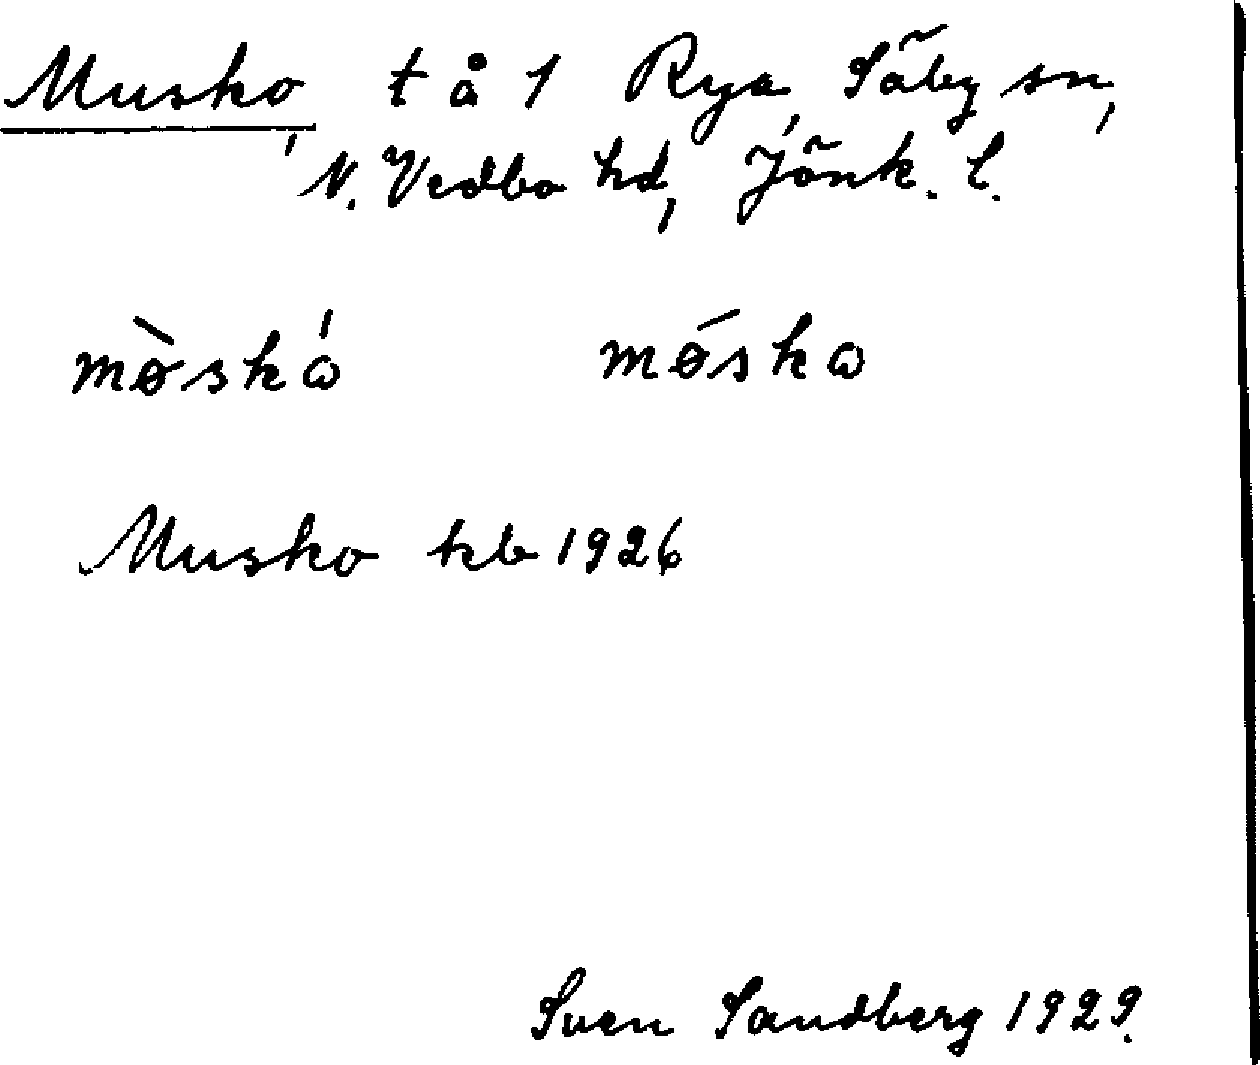 Musko, t å 1 Rya, Säby sn,
N. Vedbo hd, Jönk. l.
mø̀skó mǿsko
Musko kb 1926
Sven Sandberg 1929.